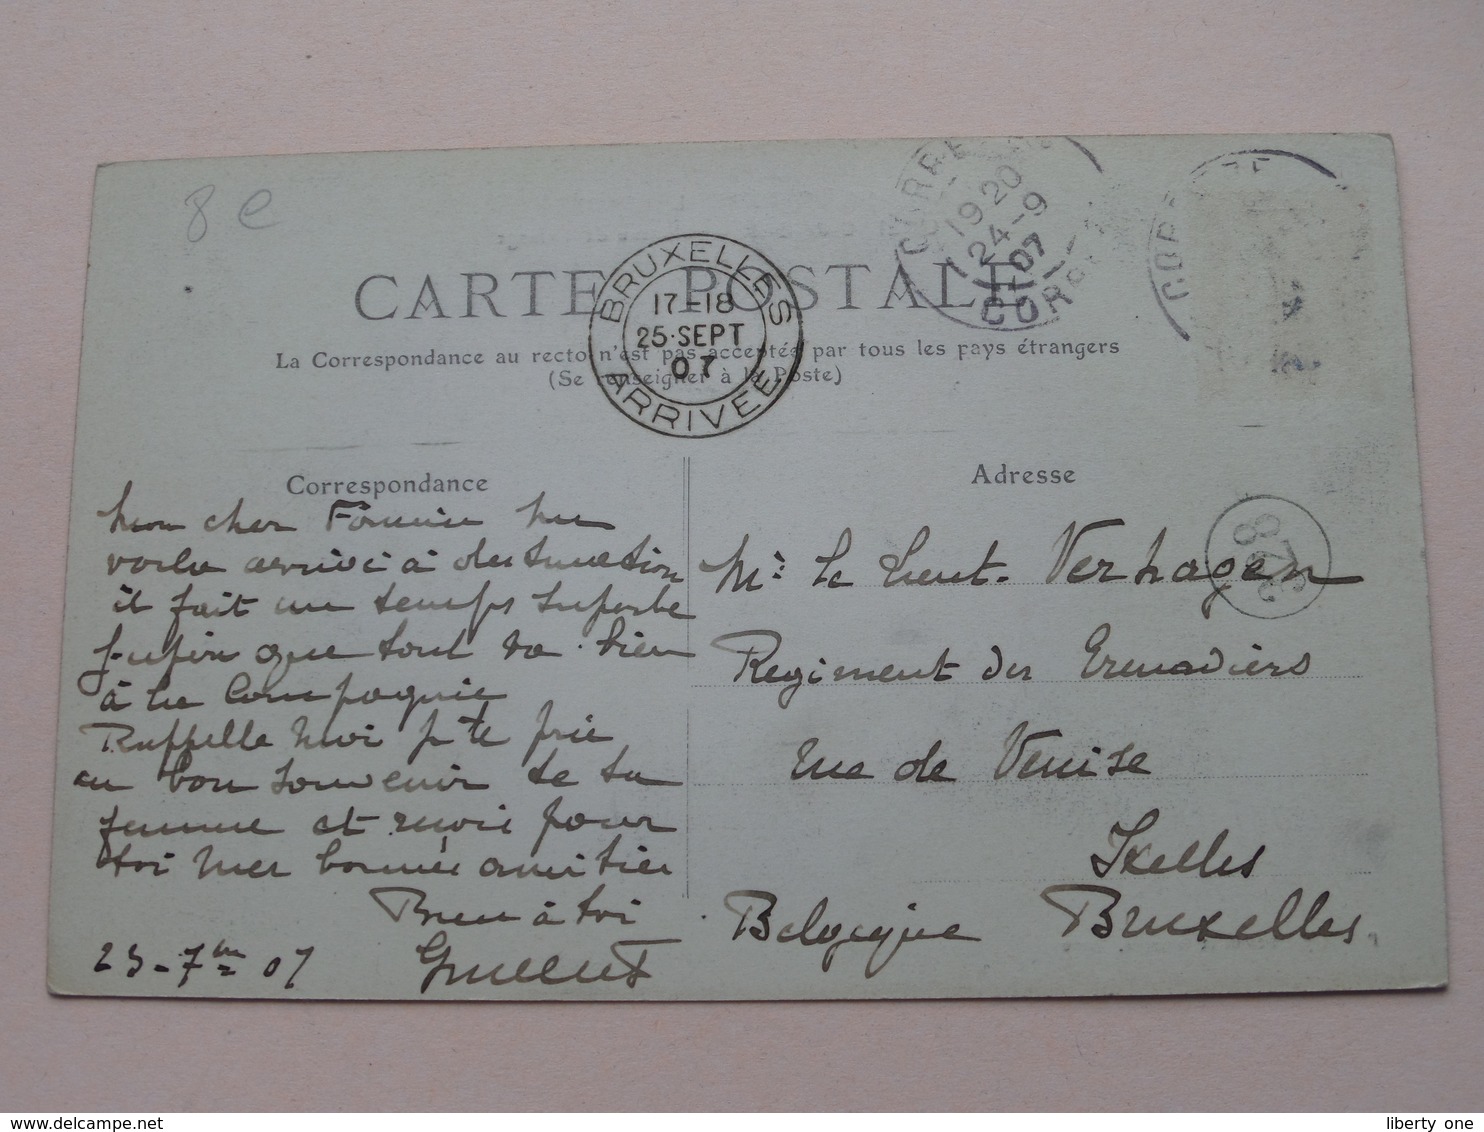 8 e
CORRÈZE
19 20
24 - 9
07
CORRÈZE
BRUXELLES
17-18
25·SEPT
07
ARRIVÉE
CARTE POSTALE
La Correspondance au recto n'est pas acceptée par tous les pays étrangers
(Se renseigner à la Poste)
Correspondance
Adresse
Mon cher Me
voila arrivé à destination
il fait un temps superbe
que tout va bien
à la Compagnie
Rappelle moi je te prie
au bon souvenir de ta
femme et reçois pour
toi mes bonnes amitiés
Bien à toi
23-7bre 07
Mr le Lieut. Verhagen
Regiment des Grenadiers
rue de Venise
Ixelles
Belgique Bruxelles
liberty one